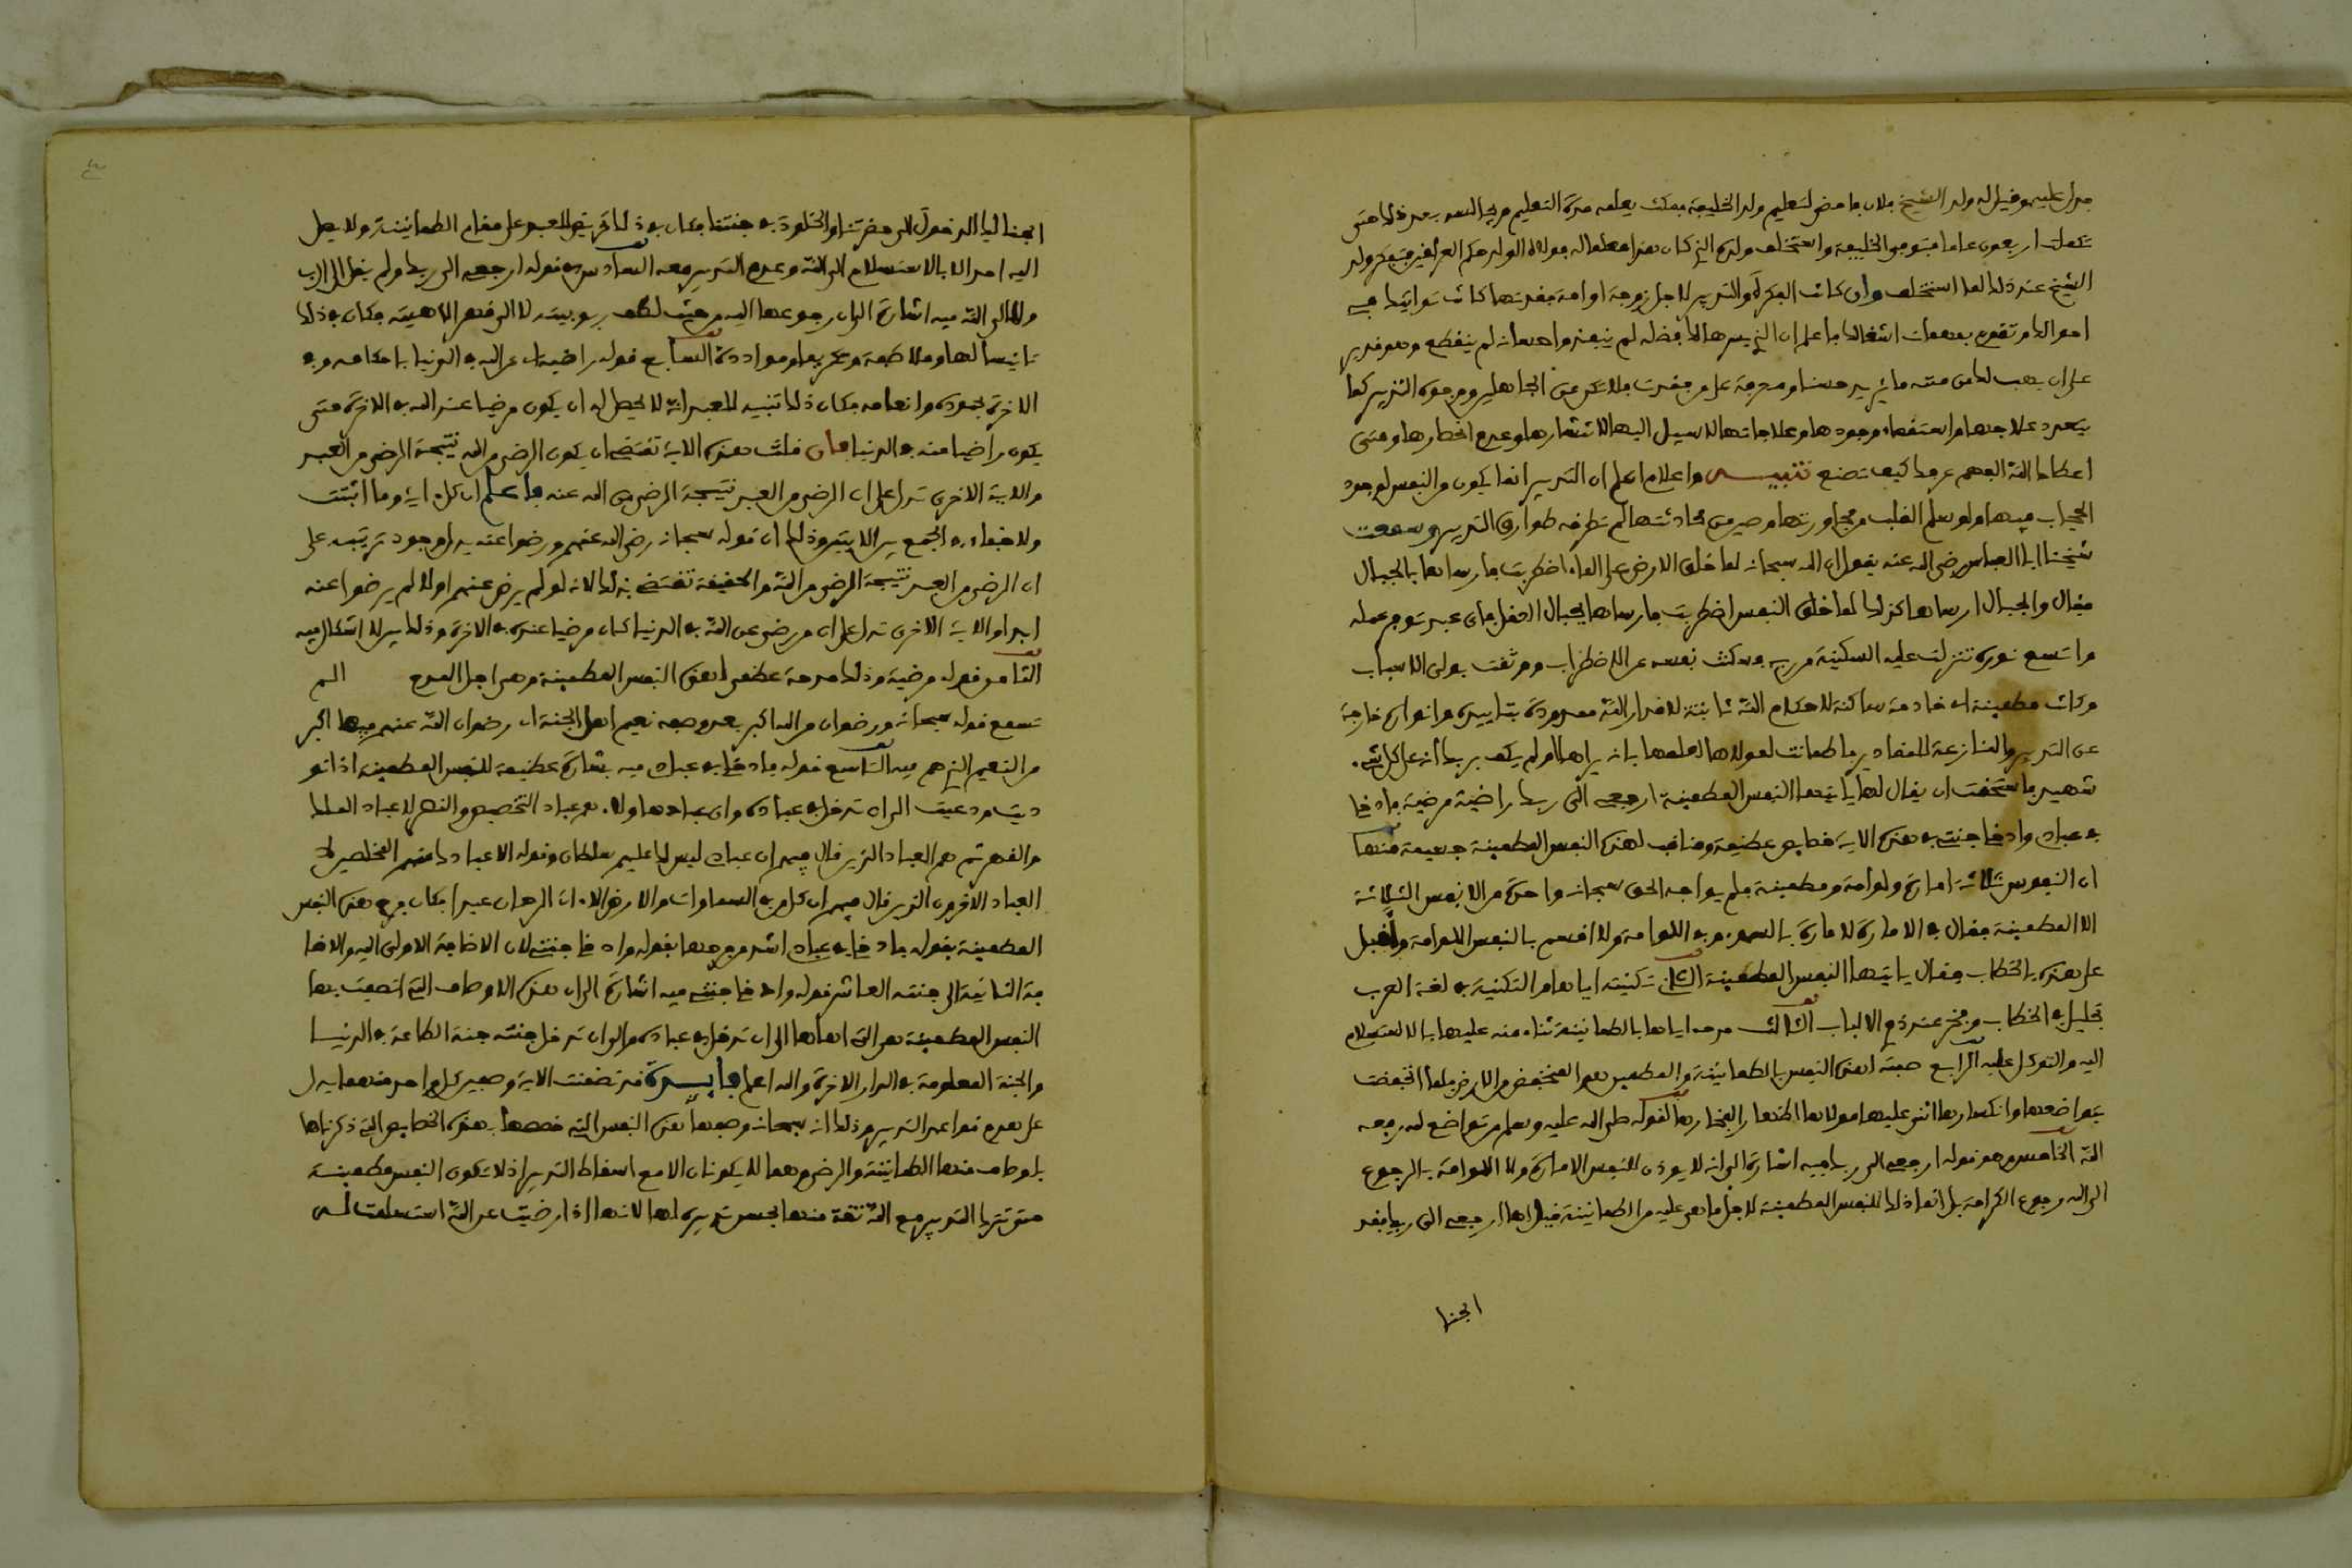 فدل عليه وقيل له ولد الشيخ فلان فامض لتعليم ولد الخليفة فمكث يعلمه مدة التعليم ويجالسه بعد ذلك حتى
تكملت اربعون عاما فتوفى الخليفة واستخلف ولده الذي كان هذا معلما له فولاه الولد حكم العراقين فتفكر ولد
الشيخ عند ذلك لما استخلف وان كانت الفكرة والتدبير لاجل زوجة او امة فقدتها كانت توافيك في
احوالك وتقوم بمهمات اشغالك فاعلم ان الذي يسرها لك فضله لم ينفد واحسانه لم ينقطع وهو قدير
على ان يهب لك من منته ما يزيد حسنا ومعرفة على من فقدت فلا تكن من الجاهلين ووجوه التدبير كما
يتعدد علاجها واستقصاء وجودها وعلاجاتها لا سبيل اليه لانتشارها وعدم انحصارها ومتى
اعطاك الله الفهم عرفك كيف تصنع تنبيه واعلام اعلم ان التدبير انما يكون من النفس لوجود
الحجاب فيها ولو سلم القلب من مجاورتها وصين من محادثتها لم تطرقه طوارق التدبير وسمعت
شيخنا ابا العباس رضي الله عنه يقول ان الله سبحانه لما خلق الارض على الماء اضطربت فارساها بالجبال
فقال والجبال ارساها كذلك لما خلق النفس اضطربت فارساها بجبال العقل فاي عبد توفر عقله
واتسع نوره تنزلت عليه السكينة من ربه فسكنت نفسه عن الاضطراب ووثقت بولي الاسباب
وكانت مطمئنة اي خامدة ساكنة لاحكام الله ثابتة لاقدار الله ممدودة بتاييده وانواره خارجة
عن التدبير والمنازعة للمقادير فاطمانت لمولاها لعلمها بانه يراها اولم يكف بربك انه على كل شيء
شهيد فاستحقت ان يقال لها يايتها النفس المطمئنة ارجعي الى ربك راضية مرضية فادخلي
في عبادي وادخلي جنتي في هذه الاية خصايص عظيمة ومناقب لهذه النفس المطمئنة جسيمة منها
ان النفوس ثلاثة امارة ولوامة ومطمئنة فلم يواجه الحق سبحانه واحدة من الانفس الثلاثة
الا المطمئنة فقال في الامارة لامارة بالسوء وفي اللوامة ولا اقسم بالنفس اللوامة واقبل
على هذه بالخطاب فقال يايتها النفس المطمئنة الثاني تكنيته اياها والتكنية في لغة العرب
تجليل في الخطاب وفخر عند ذوي الالباب الثالث مدحه اياها بالطمانينة ثناء منه عليها بالاستسلام
اليه والتوكل عليه الرابع صفته لهذه النفس بالطمانينة والمطمئن هو المنخفض من الارض فلما انخفضت
بتواضعها وانكسارها اثنى عليها مولاها اظهارا لفخارها لقوله صلى الله عليه وسلم من تواضع لله رفعه
الله الخامس وهو قوله ارجعي الى ربك فيه اشارة الى انه لا يوذن للنفس الامارة ولا اللوامة بالرجوع
الى الله رجوع الكرامة بل انما ذلك للنفس المطمئنة لاجل ما هي عليه من الطمانينة قيل لها ارجعي الى ربك فقد
ابحنا
ابحنا لك الدخول الى حضرتنا والخلود في جنتنا فكان في ذلك تحريض للعبد على مقام الطمانينة ولا يصل
اليه احد الا بالاستسلام الى الله وعدم التدبير معه السادس قوله ارجعي الى ربك ولم يقل الى الرب
ولا الى الله فيه اشارة الى ان رجوعها اليه من حيث لطف ربوبيته لا الى قهر الاهيته فكان في ذلك
تانيسا لها وملاطفة وتكريما وموادة السابع قوله راضية اي عن الله في الدنيا باحكامه وفي
الاخرة بجوده وانعامه فكان ذلك تنبيه للعبد انه لا يحصل له ان يكون مرضيا عند الله في الاخرة حتى
يكون راضيا منه في الدنيا فان قلت هذه الاية تقتضي ان يكون الرضى من الله نتيجة الرضى من العبد
والاية الاخرى تدل على ان الرضى من العبد نتيجة الرضى من الله عنه فاعلم ان كل اية وما اثبتت
ولا خفاء في الجمع بين الايتين وذلك ان قوله سبحانه رضي الله عنهم ورضوا عنه يدل وجود ترتيبه على
ان الرضى من العبد نتيجة الرضى من الله والحقيقة تقتضي بذلك لانه لو لم يرض عنهم اولا لم يرضوا عنه
اخرا والاية الاخرى تدل على ان من رضي عن الله في الدنيا كان مرضيا عنده في الاخرة وذلك بين لا اشكال فيه
الثامن قوله مرضية وذلك مدحة عظمى لهذه النفس المطمئنة وهي اجل المدح الم
تسمع قوله سبحانه ورضوان من الله اكبر بعد وصفه نعيم اهل الجنة اي رضوان الله عنهم فيها اكبر
من النعيم الذي هم فيه التاسع قوله فادخلي في عبادي فيه بشارة عظيمة للنفس المطمئنة اذ نو
ديت ودعيت الى ان تدخل في عباده واي عباد هاولاء هم عباد التخصيص والنصر لا عباد الملك
والقهر ثم هم العباد الذين قال فيهم ان عبادي ليس لك عليهم سلطان وقوله الا عبادك منهم المخلصين لا
العباد الاخرون الذين قال فيهم ان كل من في السماوات والارض الا اتى الرحمن عبدا فكان فرح هذه النفس
المطمئنة بقوله فادخلي في عبادي اشد من فرحها بقوله وادخلي جنتي لان الاضافة الاولى اليه والاضا
فة الثانية الى جنته العاشر قوله وادخلي جنتي فيه اشارة الى ان هذه الاوصاف التي اتصفت بها
النفس المطمئنة هي التي اهلتها الى ان تدخل في عباده والى ان تدخل جنته جنة الطاعة في الدنيا
والجنة المعلومة في الدار الاخرة والله اعلم فايدة قد تضمنت الاية وصفين كل واحد منهما يدل
على هدم قواعد التدبير وذلك انه سبحانه وصف هذه النفس التي خصصها بهذه الخصايص التي ذكرناها
باوصاف منها الطمانينة والرضى وهما لا يكونان الا مع اسقاط التدبير اذ لا تكون النفس مطمئنة
حتى تترك التدبير مع الله ثقة منها بحسن تدبيره لها لانها اذا رضيت عن الله استسلمت له